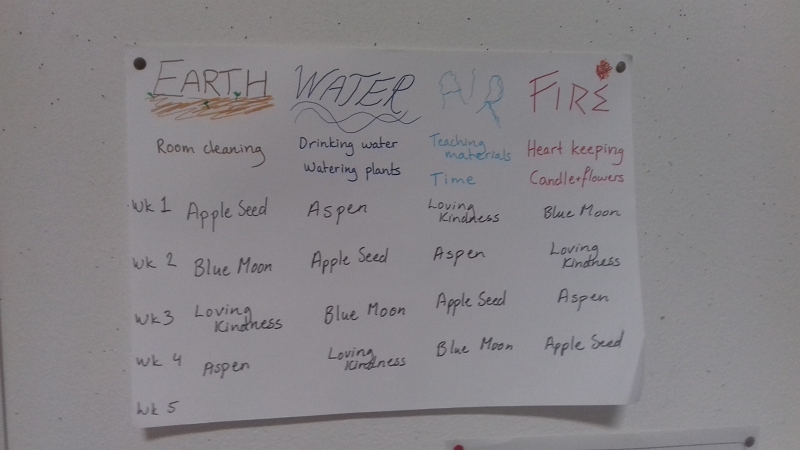 EARTH WATER AIR FIRE
Room cleaning Drinking water Teaching materials Heart keeping
Watering plants Time Candle+flowers
Wk 1 Apple Seed Aspen Loving Kindness Blue Moon
Wk 2 Blue Moon Apple Seed Aspen Loving Kindness
Wk 3 Loving Kindness Blue Moon Apple Seed Aspen
Wk 4 Aspen Loving Kindness Blue Moon Apple Seed
Wk 5